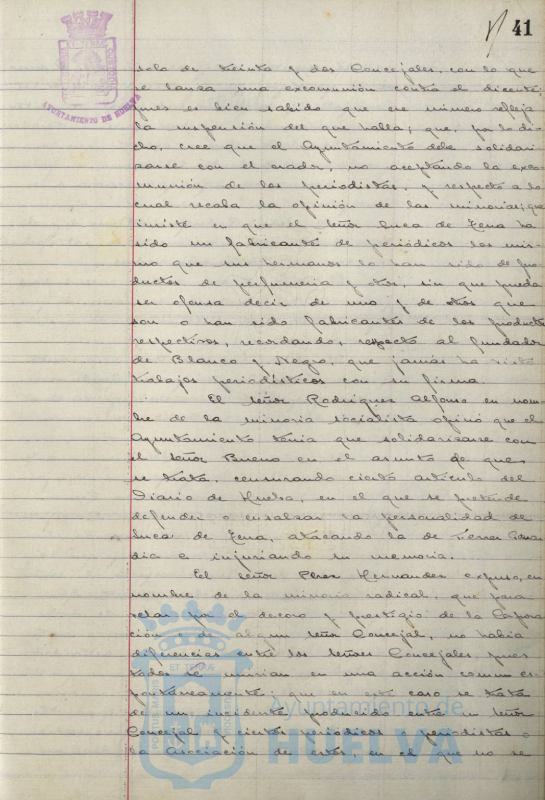 41
AYUNTAMIENTO DE HUELVA
solo de treinta y dos Concejales, con lo que
se lanza una excomunión contra el dicente;
pues es bien sabido que ese número refleja
la suspensión del que habla; que, por lo di-
cho, cree que el Ayuntamiento debe solidari
zarse con el orador, no aceptando la exco-
munión de los periodistas, y respecto a lo
cual recaba la opinión de las minorias; que
insiste en que el señor Luca de Tena ha
sido un fabricante de periódicos lo mis-
mo que sus hermanos lo han sido de pro
ductos de perfumeria y otros, sin que pueda
ser ofensa decir de uno y de otros que
son o han sido fabricantes de los productos
respectivos, recordando, respecto al fundador
de Blanco y Negro, que jamás ha visto
trabajos periodísticos con su firma.
El señor Rodriguez Alfonso en nom-
bre de la minoria socialista opinó que el
Ayuntamiento tenia que solidarizarse con
el señor Bueno en el asunto de que
se trata, censurando cierto articulo del
Diario de Huelva, en el que se pretende
defender o ensalzar la personalidad de
Luca de Tena, atacando la de
dia e injuriando su memoria.
El señor Perez Hernandez expuso, en
nombre de la minoria radical, que para
velar por el decoro y prestigio de la Corpora
ción o de algun señor Concejal, no habia
diferencias entre los señores Concejales pues
todos se unirian en una acción comun es-
pontáneamente; que en este caso se trata
de un incidente producido entre un señor
Concejal y ciertos periodicos o periodistas o
la Asociación de estos, en el que no se
ET TERRE
PORTUS MARIS
Ayuntamiento de
HUELVA